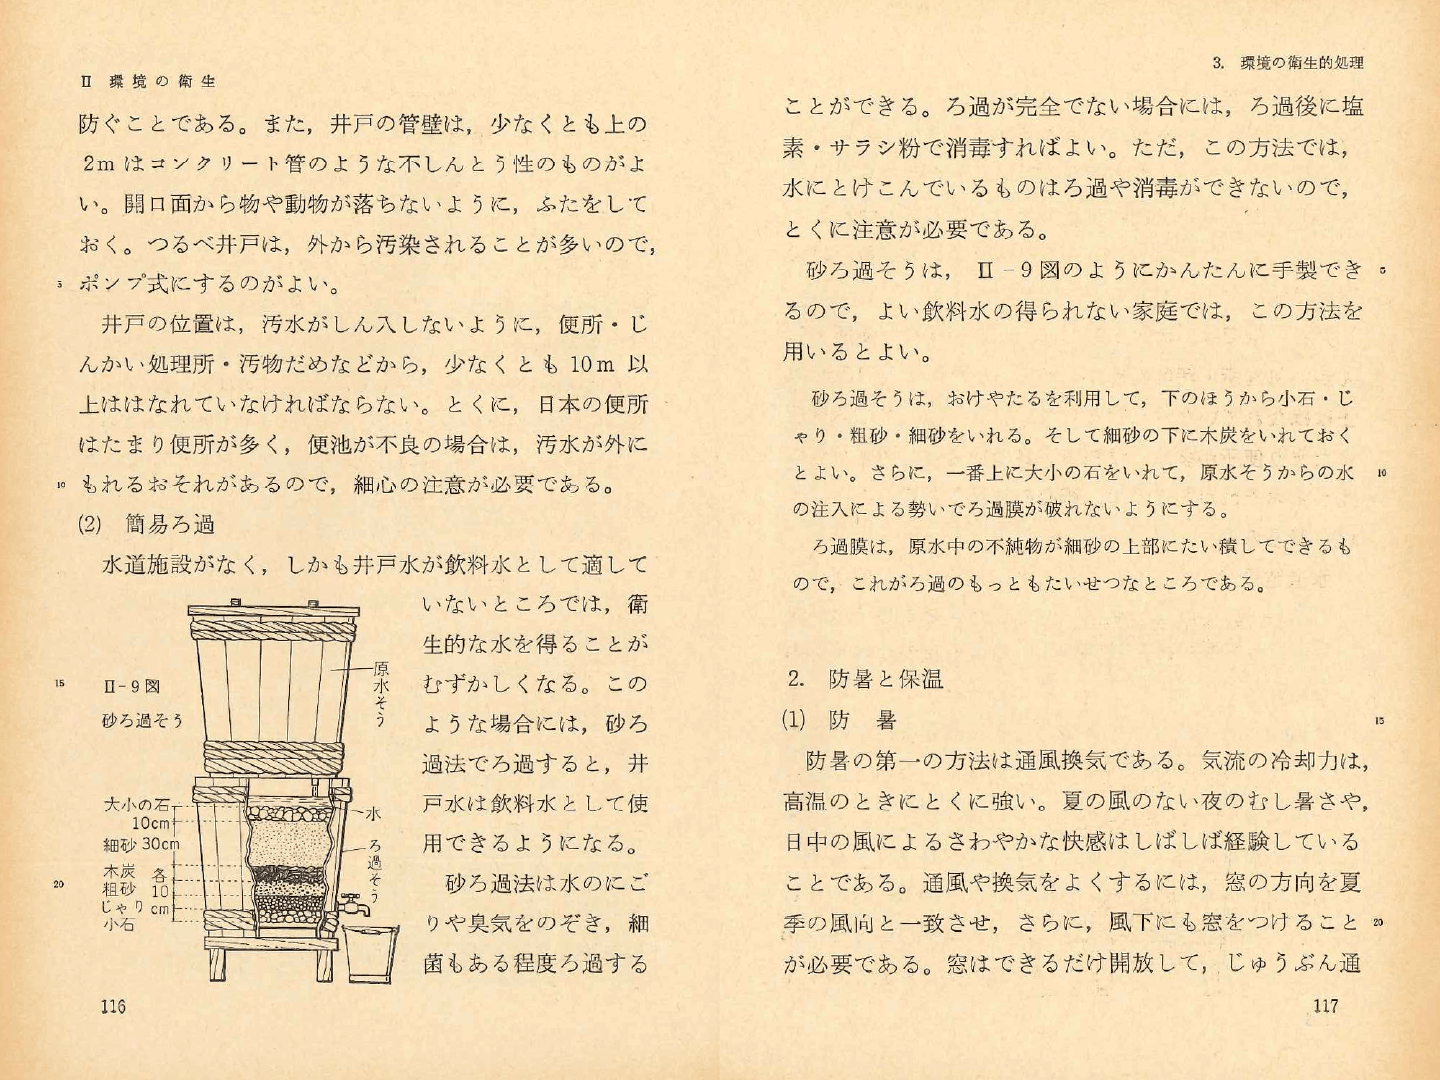 Ⅱ 環境の衛生
防ぐことである。また，井戸の管壁は，少なくとも上の
2m はコンクリート管のような不しんとう性のものがよ
い。開口面から物や動物が落ちないように，ふたをして
おく。つるべ井戸は，外から汚染されることが多いので，
5 ポンプ式にするのがよい。
井戸の位置は，汚水がしん入しないように，便所・じ
んかい処理所・汚物だめなどから，少なくとも 10m 以
上ははなれていなければならない。とくに，日本の便所
はたまり便所が多く，便池が不良の場合は，汚水が外に
10 もれるおそれがあるので，細心の注意が必要である。
(2) 簡易ろ過
水道施設がなく，しかも井戸水が飲料水として適して
いないところでは，衛
生的な水を得ることが
15 むずかしくなる。この
ような場合には，砂ろ
過法でろ過すると，井
戸水は飲料水として使
用できるようになる。
20 砂ろ過法は水のにご
りや臭気をのぞき，細
菌もある程度ろ過する
Ⅱ-9図
砂ろ過そう
原水そう
大小の石
10cm
細砂 30cm
木炭 各
粗砂 10
じゃり cm
小石
水
ろ過そう
116
3. 環境の衛生的処理
ことができる。ろ過が完全でない場合には，ろ過後に塩
素・サラシ粉で消毒すればよい。ただ，この方法では，
水にとけこんでいるものはろ過や消毒ができないので，
とくに注意が必要である。
砂ろ過そうは，Ⅱ-9図のようにかんたんに手製でき 5
るので，よい飲料水の得られない家庭では，この方法を
用いるとよい。
砂ろ過そうは，おけやたるを利用して，下のほうから小石・じ
ゃり・粗砂・細砂をいれる。そして細砂の下に木炭をいれておく
とよい。さらに，一番上に大小の石をいれて，原水そうからの水 10
の注入による勢いでろ過膜が破れないようにする。
ろ過膜は，原水中の不純物が細砂の上部にたい積してできるも
ので，これがろ過のもっともたいせつなところである。
2. 防暑と保温
(1) 防暑 15
防暑の第一の方法は通風換気である。気流の冷却力は，
高温のときにとくに強い。夏の風のない夜のむし暑さや，
日中の風によるさわやかな快感はしばしば経験している
ことである。通風や換気をよくするには，窓の方向を夏
季の風向と一致させ，さらに，風下にも窓をつけること 20
が必要である。窓はできるだけ開放して，じゅうぶん通
117